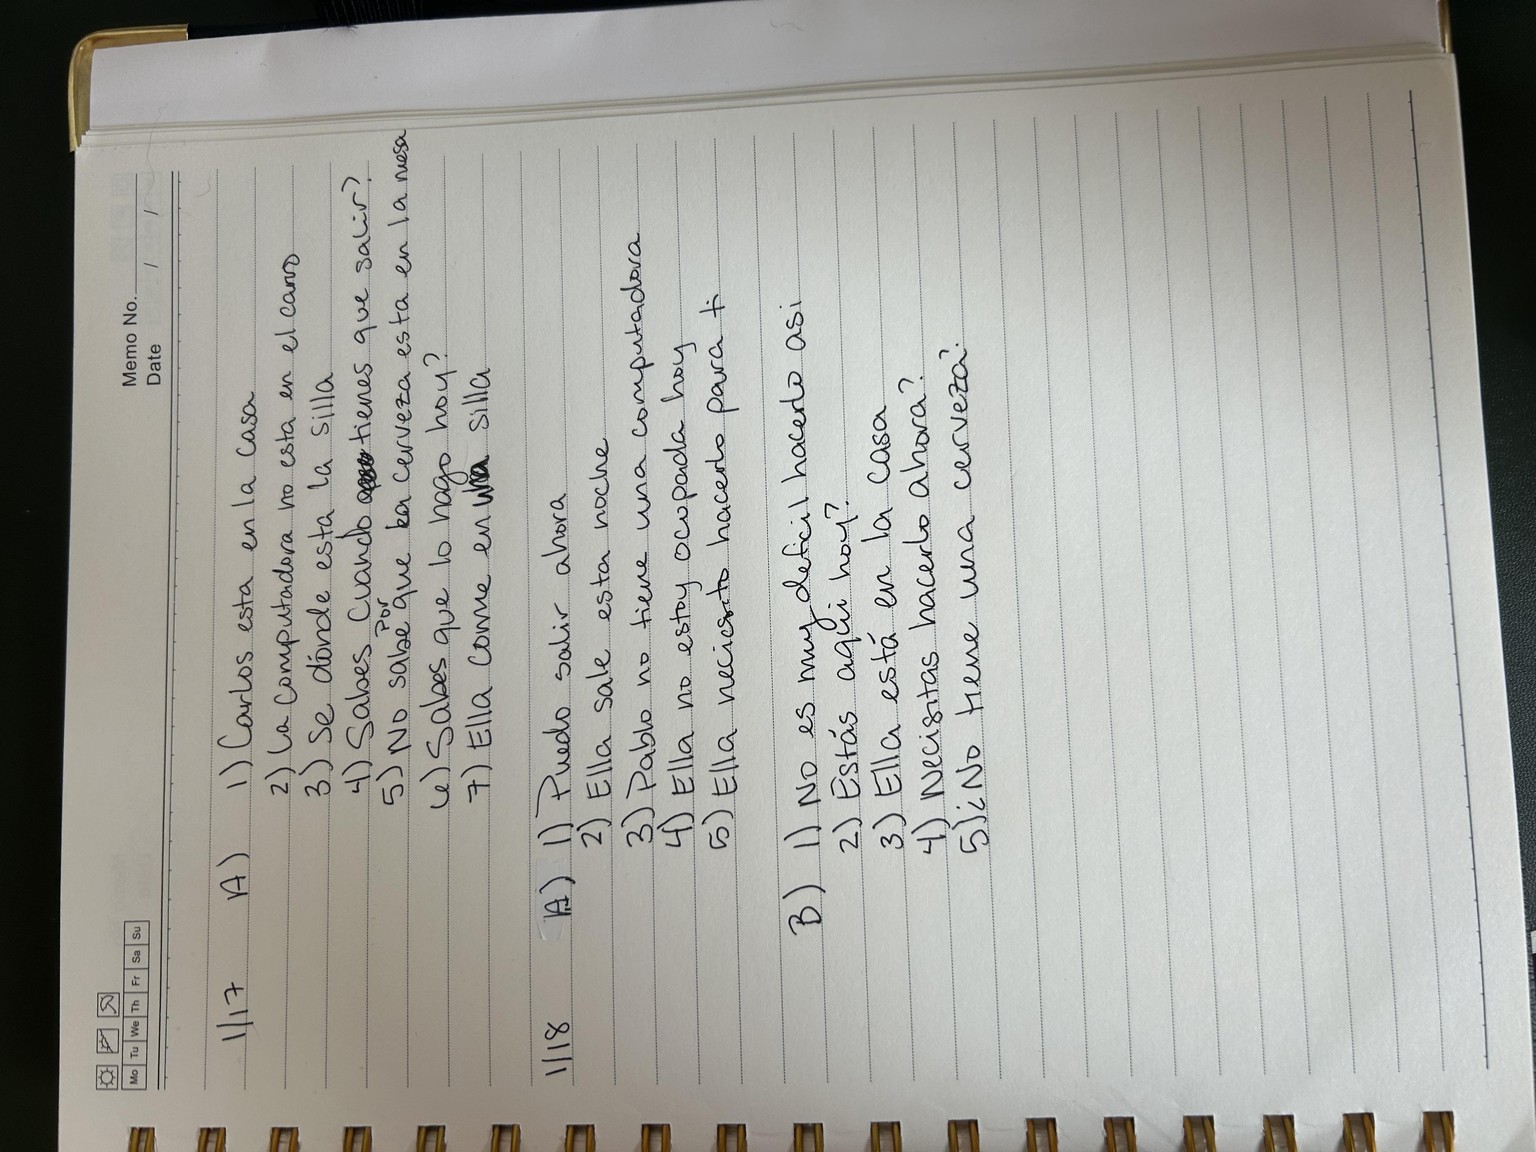 Memo No.
Date / /
Mo Tu We Th Fr Sa Su
1/17 A) 1) Carlos esta en la casa
2) La computadora no esta en el carro
3) Se dónde esta la silla
4) Sabes cuando tienes que salir?
por
5) No sabe que la cerveza esta en la mesa
6) Sabes que lo hago hoy?
7) Ella come en una silla
1/18 A) 1) Puedo salir ahora
2) Ella sale esta noche
3) Pablo no tiene una computadora
4) Ella no estoy ocupada hoy
5) Ella necisito hacerlo para ti
B) 1) No es muy deficil hacerlo asi
2) Estás aqui hoy?
3) Ella está en la casa
4) Necisitas hacerlo ahora?
5) ¿No tiene una cerveza?